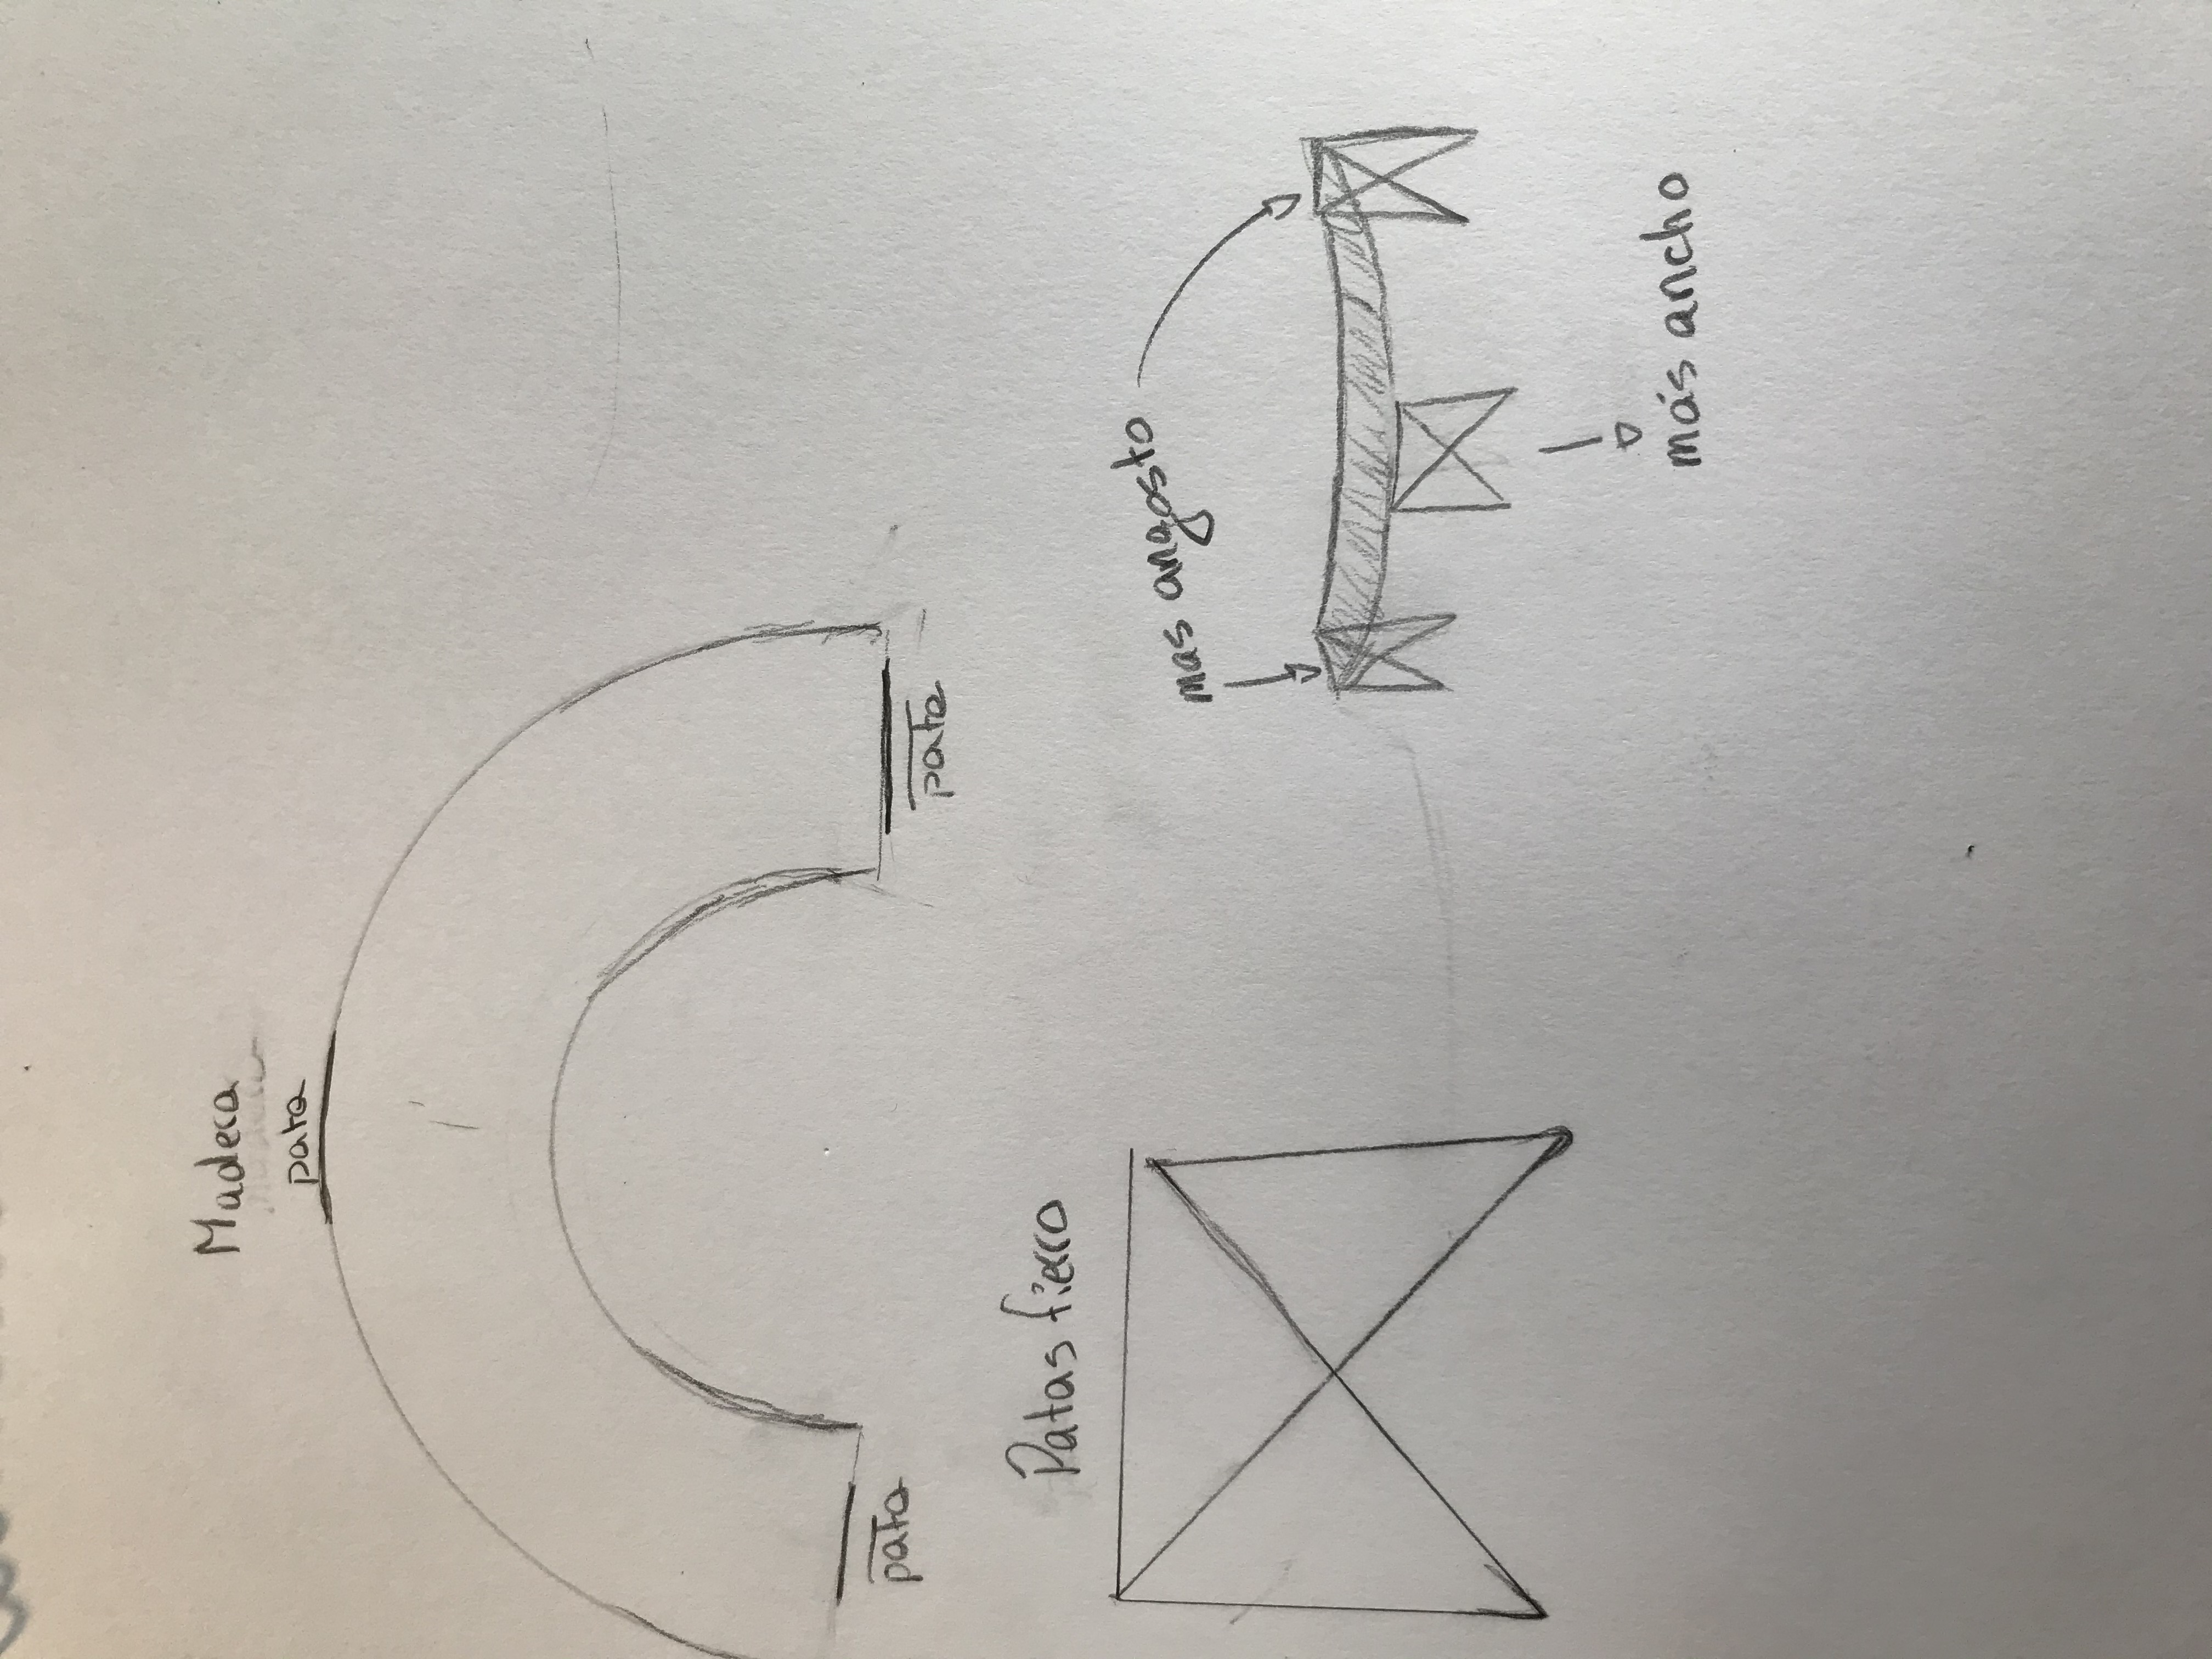 Madera
pata
pata
pata
Patas fierro
mas angosto
más ancho